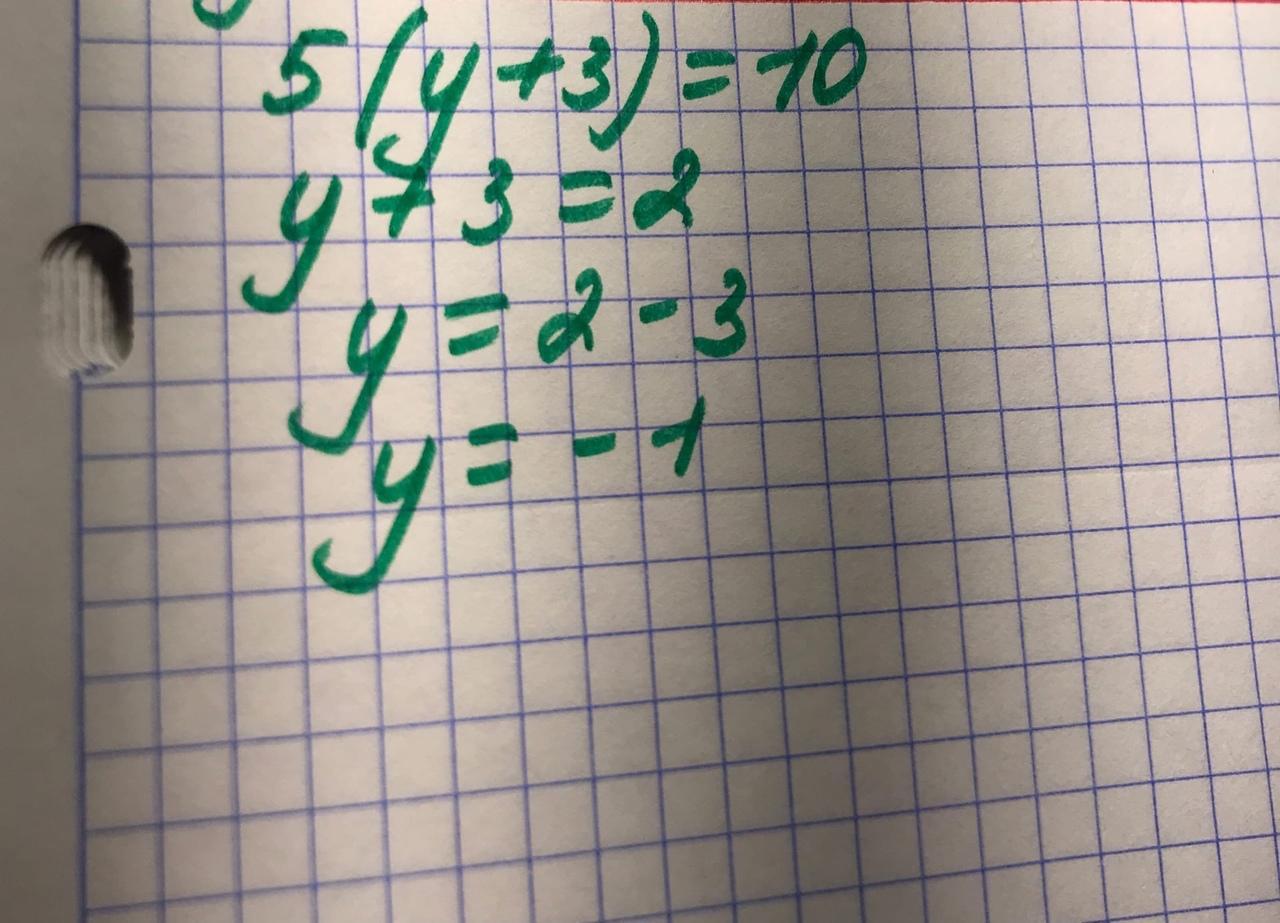 5(y+3)=10
y+3=2
y=2-3
y=-1